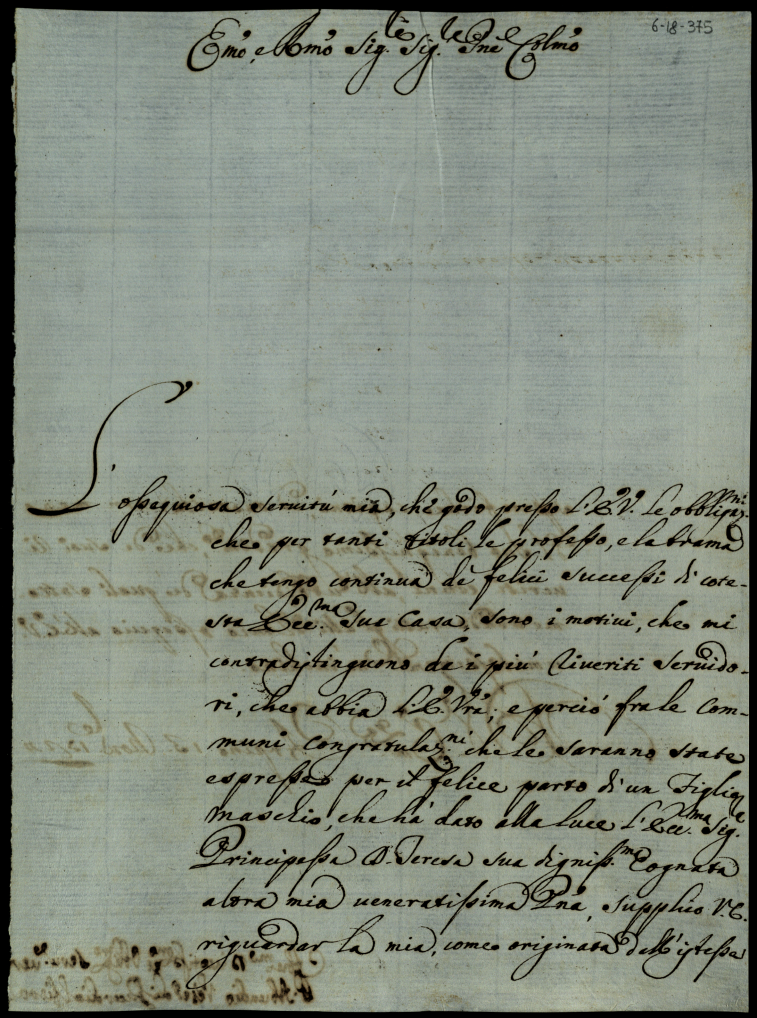 6-18-375
Emo, e Rmo Sig.re Sig.re Pne Colmo
L'ossequiosa seruitù mia, che godo presso l'E.V. le obbligaz.ni
che per tanti titoli le professo, e la brama
che tengo continua de felici successi di cote-
sta Ecc.ma Sua Casa, sono i motiui, che mi
contradistinguono da i più riueriti seruido-
ri, che abbia l'E. Vra; e perciò fra le com-
muni congratulaz.ni che le saranno state
espresse per il felice parto di un Figlio
Maschio, che hà dato alla luce l'Ecc.ma Sig.ra
Principessa D. Teresa sua digniss.ma Cognata
altra mia ueneratissima Pna, supplico V.E.
riguardar la mia, come originata dall'istessa